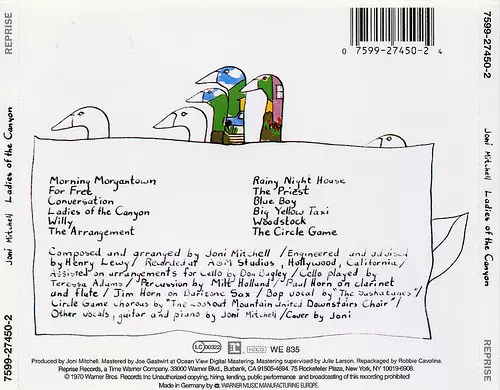 REPRISE
7599-27450-2
0 7599-27450-2 4
7599-27450-2
REPRISE
Joni Mitchell Ladies of the Canyon
Joni Mitchell Ladies of the Canyon
Morning Morgantown
For Free
Conversation
Ladies of the Canyon
Willy
The Arrangement
Rainy Night House
The Priest
Blue Boy
Big Yellow Taxi
Woodstock
The Circle Game
Composed and arranged by Joni Mitchell / Engineered and advised
by Henry Lewy / Recorded at A&M Studios, Hollywood, California /
Assisted on arrangements for Cello by Don Bagley / Cello played by
Teressa Adams / Percussion by Milt Holland / Paul Horn on clarinet
and flute / Jim Horn on Baritone Sax / Bop vocal by "The Saskatunes" /
Circle Game chorous by "The Lookout Mountain United Downstairs Choir" /
Other vocals, guitar and piano by Joni / Cover by Joni
LC 00322 WE 835
Produced by Joni Mitchell. Mastered by Joe Gastwirt at Ocean View Digital Mastering. Mastering supervised by Julie Larson. Repackaged by Robbie Cavolina.
Reprise Records, a Time Warner Company, 33000 Warner Blvd., Burbank, CA 91505-4694. 75 Rockefeller Plaza, New York, NY 10019-6908.
© 1970 Warner Bros. Records Inc. Unauthorized copying, hiring, lending, public performance and broadcasting of this recording prohibited
Made in Germany by WARNER MUSIC MANUFACTURING EUROPE.
7599-27450-2
7599-27450-2
REPRISE